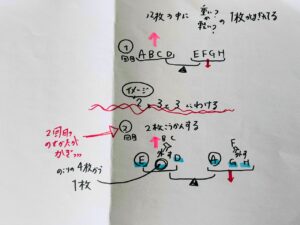 12枚の中に 重い? の 軽い? の 1枚がまざってる
① 回目
A B C D
E F G H
イメージ
?・3・3にわける
② 回目
2枚こうかんする
2回目、のせかたがかぎ...
B C
E
D
A
F
G H
のこりの4枚から
1枚